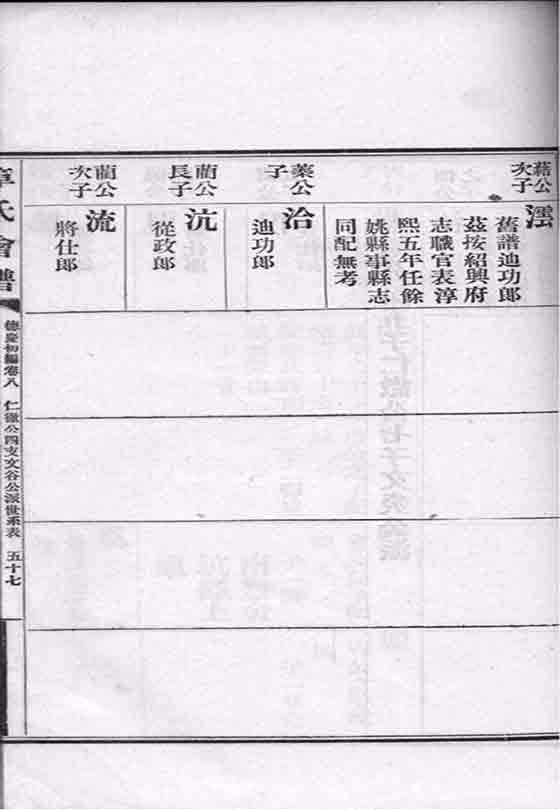 藉公
次子
澐
舊譜迪功郎
茲按紹興府
志職官表淳
熙五年任餘
姚縣事縣志
同配無考
蘂公
子
洽
迪功郎
藺公
長子
沆
從政郎
藺公
次子
流
將仕郎
章氏會譜
德慶初編卷八
仁徹公四支文谷公派世系表
五十七